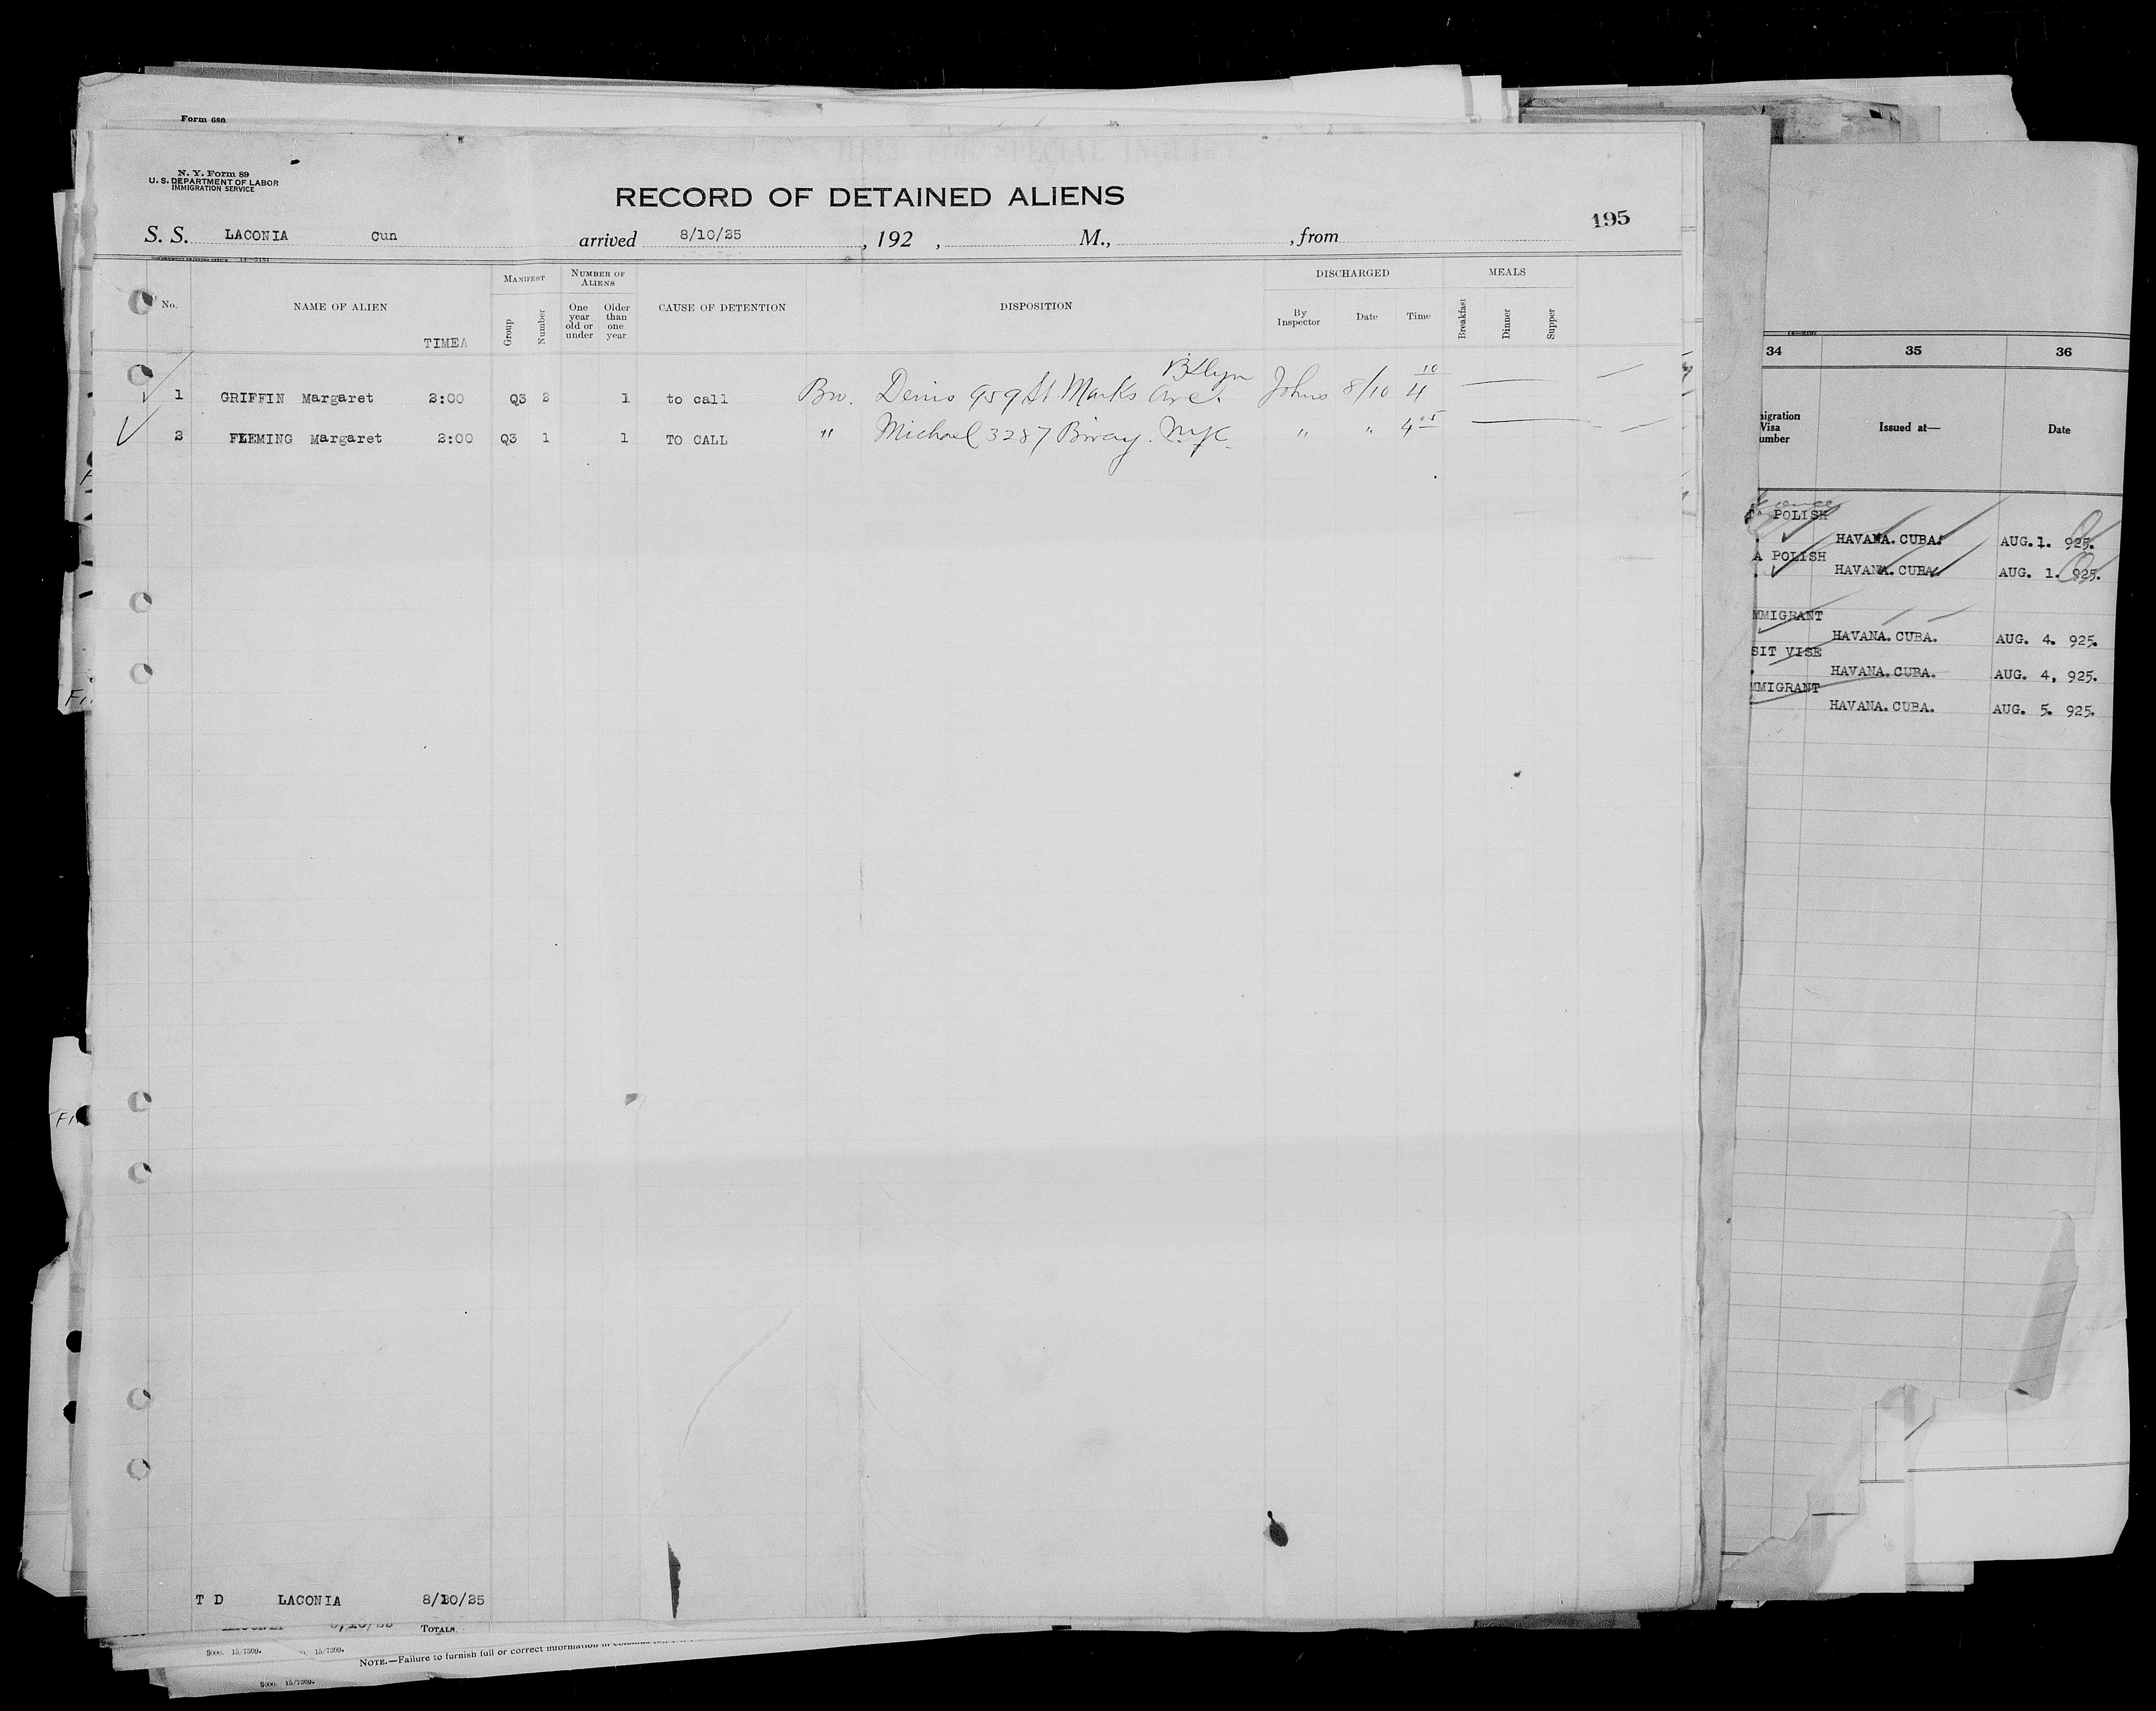 Form 680.
N. Y. Form 89
U. S. DEPARTMENT OF LABOR
IMMIGRATION SERVICE
HELD FOR SPECIAL INQUIRY
RECORD OF DETAINED ALIENS
195
S. S. LACONIA Cun arrived 8/10/25, 192 , M., , from
No. NAME OF ALIEN TIMEA MANIFEST Group Number NUMBER OF ALIENS One year old or under Older than one year CAUSE OF DETENTION DISPOSITION DISCHARGED By Inspector Date Time MEALS Breakfast Dinner Supper
1 GRIFFIN Margaret 2:00 Q3 2 1 to call Bro. Denis 959 St Marks Ave. Bklyn Johns 8/10 4 10
2 FLEMING Margaret 2:00 Q3 1 1 TO CALL " Michael 3287 Bway. NYC " " 4 05
T D LACONIA 8/10/25
TOTALS
5000. 15/7309. 15/7309.
NOTE.—Failure to furnish full or correct information in
5000. 15/7309.
34 35 36
Issued at— Date
POLISH
HAVANA. CUBA. AUG. 1. 925.
A POLISH
HAVANA. CUBA. AUG. 1. 925.
MMIGRANT
HAVANA. CUBA. AUG. 4. 925.
SIT VISE
HAVANA. CUBA. AUG. 4, 925.
MMIGRANT
HAVANA. CUBA. AUG. 5. 925.